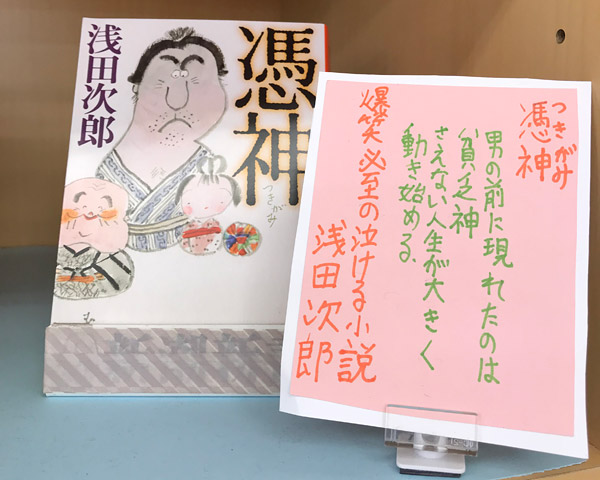 憑神
つきがみ
浅田次郎
つきがみ
憑神
男の前に現れたのは
貧乏神
さえない人生が大きく
動き始める
爆笑必至の泣ける小説
浅田次郎